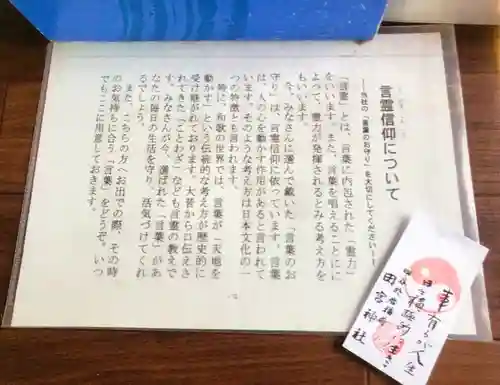 言霊信仰について
―当社の「言葉のお守り」を大切にしてください―
「言霊」とは、言葉に内包された「霊力」
をいいます。また、言葉を唱えることにに
よって、霊力が発揮されるとみる考え方を
もいいます。
今、みなさんに選んで戴いた「言葉のお
守り」は、言霊信仰に依っています。言葉
は、人の心を動かす作用があると言われて
います。そのような考え方は日本文化の一
つの特徴とも言われます。
特に、和歌の世界では、言葉が「天地を
動かす」という伝統的な考え方が歴史的に
受け継がれております。大昔から口伝えさ
れてきた「ことわざ」なども言霊の教えで
す。みなさんが今、選ばれた「言葉」があ
なたの毎日の生活を守り、活気づけてくれ
るでしょう。
また、こちらの方へお出での際、その時
のお気持ちに合う「言葉」をどうぞ。いつ
でもここに用意しておきます。
事有るが人生
日々積極的に生きる
田宮神社